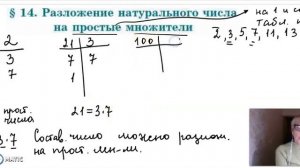 § 14. Разложение натурального числа
на простые множители
на 1 и с
табл. п
2, 3, 5, 7, 11, 13
2
3
7
21 3
7 7
1
100
прост.
числа
21 = 3·7
3·7 Состав. число можно разлож.
на прост. мн-ли.